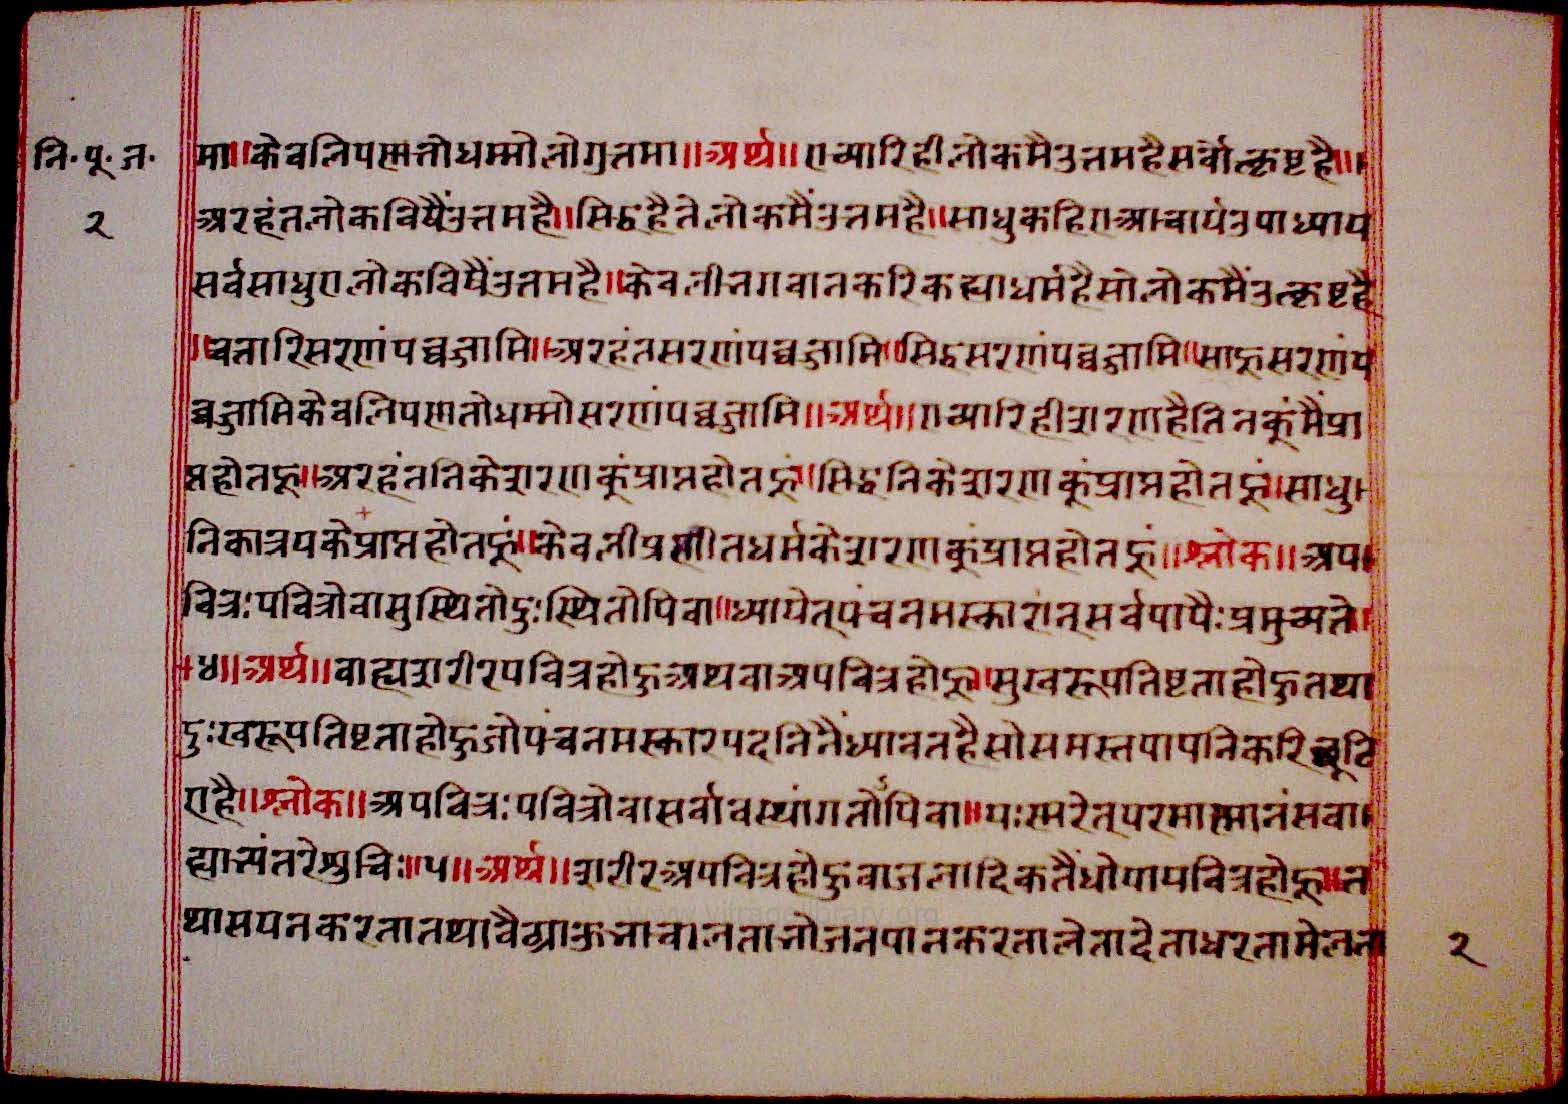 नि·पू·ज·
२
मा॥केवलिपसात्तोधम्मोलोगुत्तमा॥अर्थ॥एच्यारिहीलोकमैउत्तमहैसर्वोत्कृष्टहै॥
अरहंतलोकविषैंउत्तमहै॥सिद्धहैतेलोकमैंउत्तमहै॥साधुकहिएआचार्यउपाध्याय
सर्वसाधुएलोकविषैंउत्तमहै॥केवलीभगवानकरिकह्याधर्महैसोलोकमैंउत्कृष्टहै
॥चत्तारिसरणंपव्वज्जामि॥अरहंतसरणंपव्वज्जामि॥सिद्धसरणंपव्वज्जामि॥साहूसरणंप
व्वज्जामिकेवलिपणतोधम्मोसरणंपव्वज्जामि॥अर्थ॥एच्यारिहीशरणहैतिनकूंमैंप्रा
प्तहोतहू॥अरहंतनिकेशरणकूंप्राप्तहोतहूं॥सिद्धनिकेशरणकूंप्राप्तहोतहूं॥साधु।
निकात्रयकेप्राप्तहोतहूं॥केवलीप्रणीतधर्मकेशरणकूंप्राप्तहोतहूं॥श्लोक॥अप।
वित्रःपवित्रोवासुस्थितोदुःस्थितोपिवा॥ध्यायेत्पंचनमस्कारांन्सर्वपापैःप्रमुच्यते॥
४॥अर्थ॥वाह्यशरीरपवित्रहोहुअथवाअपवित्रहोहू॥सुखरूपतिष्टताहोहुतथा
दुःखरूपतिष्टताहोहुजोपंचनमस्कारपदनिनैंध्यावतहैसोसमस्तपापनिकरिछूटि
एहै॥श्लोक॥अपवित्रःपवित्रोवासर्वावस्थांगतोपिवा॥यःस्मरेत्परमात्मानंसवा।
ह्याभ्यंतरेशुचिः॥५॥अर्थ॥शरीरअपवित्रहोहुवाजलादिकतैंधोयापवित्रहोहू॥त
थासयनकरतातथावैठाऊभाचालताभोजनपानकरतालेतादेताधरतामेलता
२
www.vitragdlibrary.org